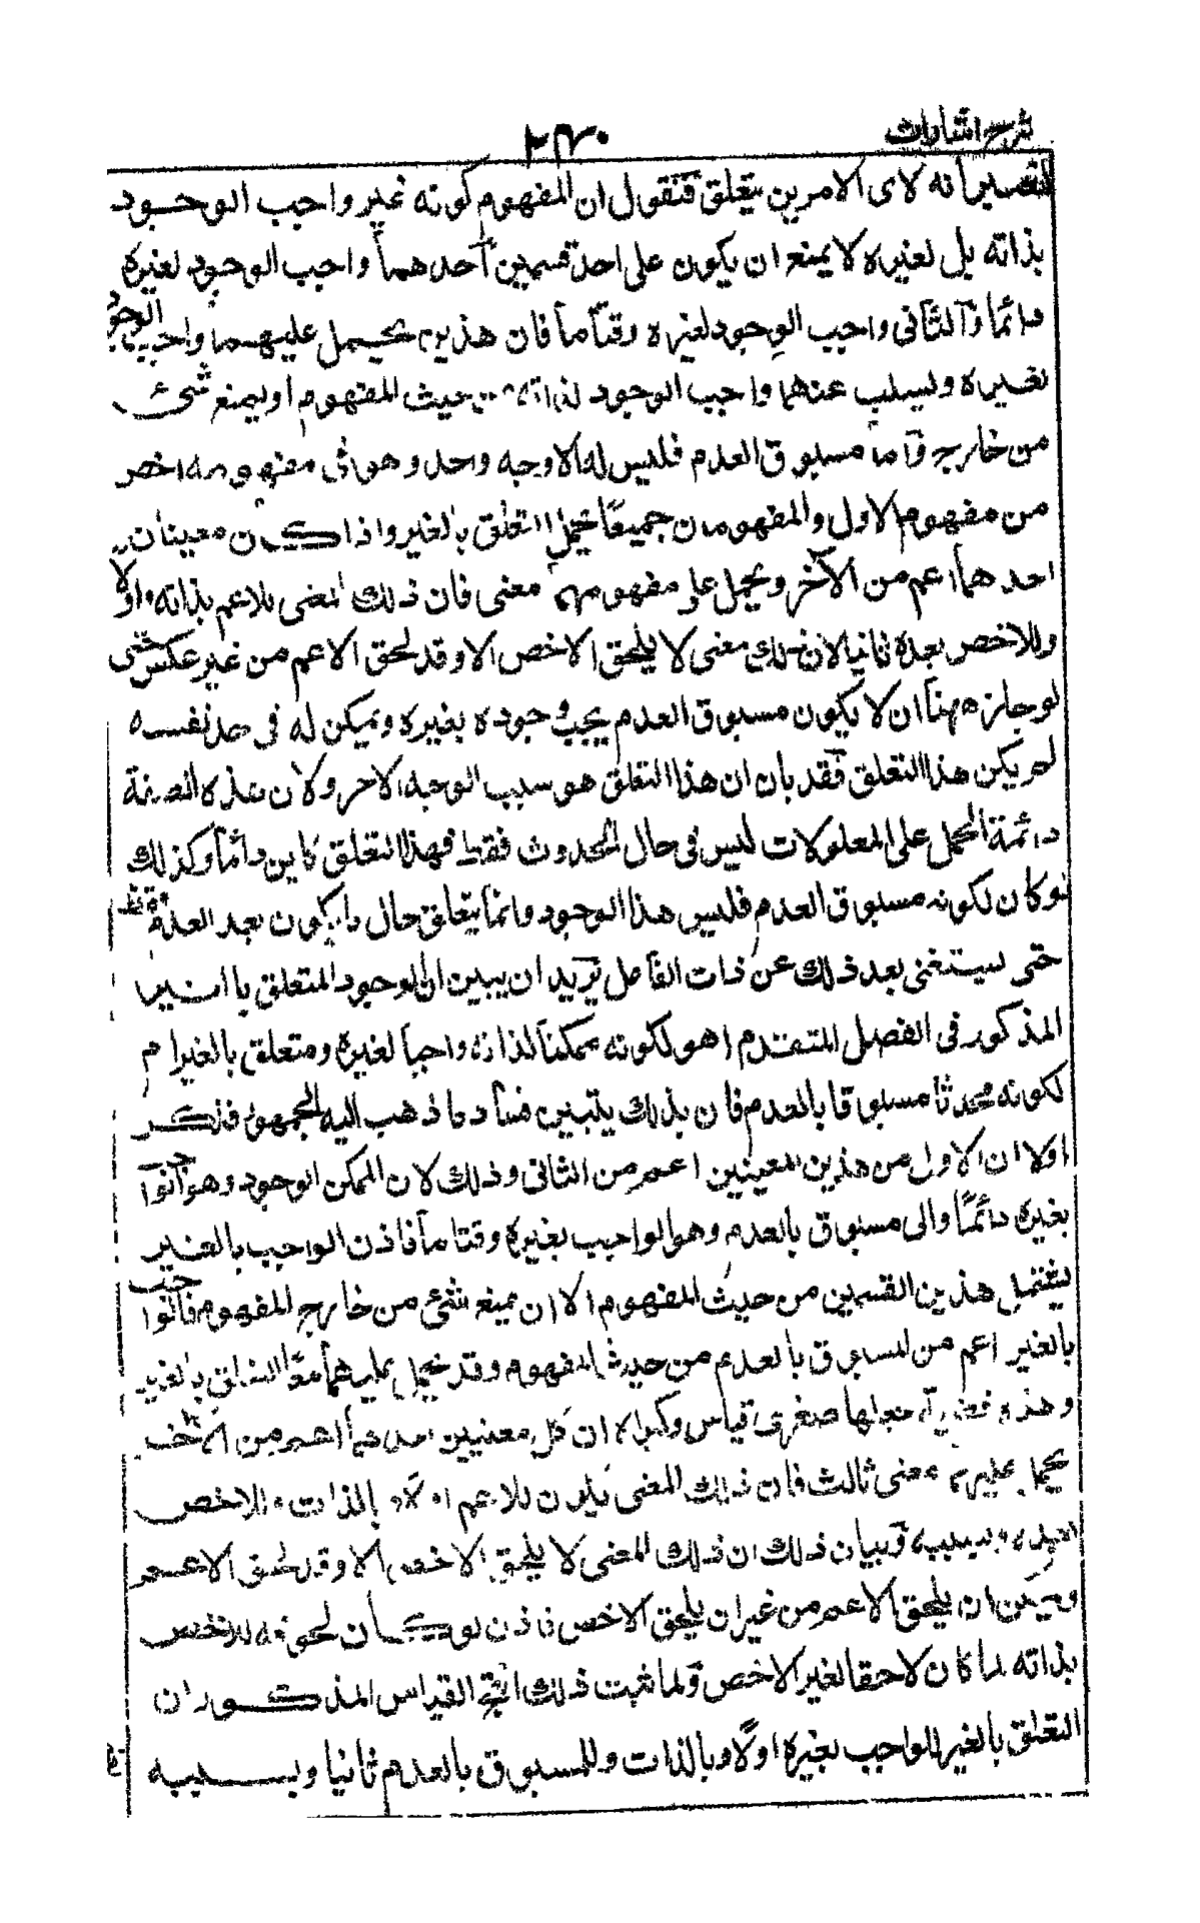 شرح اشارات
٢٤٠
لنعتبر أنه لای الامرين يتعلق فنقول ان المفهوم كونه غير واجب الوجود
بذاته بل لغيره لا يمنع ان يكون على احد قسمين احدهما واجب الوجود لغيره
دائما والثانی واجب الوجود لغيره وقتا ما فان هذين يحمل عليهما واجب الوجود
لغيره ويسلب عنهما واجب الوجود لذاته من حيث المفهوم او يمنع شیء
من خارج واما مسبوق العدم فليس له الا وجه واحد وهو فی مفهومه اخص
من مفهوم الاول والمفهومان جميعا يحمل التعلق بالغير واذا كان معنيان
احدهما اعم من الآخر ويحمل على مفهوميهما معنى فان ذلك المعنى للاعم بذاته واولا
وللاخص بعده ثانيا لان ذلك معنى لا يلحق الاخص الا وقد لحق الاعم من غير عكس حتى
لو جاز ههنا ان لا يكون مسبوق العدم يجب وجوده بغيره ويمكن له فی حد نفسه
لم يكن هذا التعلق فقد بان ان هذا التعلق هو سبب الوجه الاخر ولان هذه الصفة
دائمة الحمل على المعلولات ليس فی حال الحدوث فقط فهذا التعلق كاين دائما وكذلك
لو كان لكونه مسبوق العدم فليس هذا الوجود وانما يتعلق حال ما يكون بعد العدم فقط
حتى يستغنی بعد ذلك عن ذات الفاعل نريد ان يبين ان الوجود المتعلق بالغير
المذكور فی الفصل المتقدم اهو لكونه ممكنا لذاته واجبا لغيره ومتعلق بالغير ام
لكونه محدثا مسبوقا بالعدم فان بذلك يتبين فساد ما ذهب اليه الجمهور فذكر
اولا ان الاول من هذين المعنيين اعم من الثانی وذلك لان الممكن الوجود وهو الواجب
بغيره دائما والى مسبوق بالعدم وهو الواجب بغيره وقتا ما فاذن الواجب بالغير
يشتمل هذين القسمين من حيث المفهوم الا ان يمنع شیء من خارج المفهوم فالواجب
بالغير اعم من المسبوق بالعدم من حيث المفهوم وقد يحمل عليهما معا التعلق بالغير
وهذه قضية جعلها صغرى قياس وكبراه ان كل معنيين احدهما اعم من الآخر
يحمل عليهما معنى ثالث فان ذلك المعنى يكون للاعم اولا و بالذات وللاخص
بعده وبسببه وبيان ذلك ان ذلك المعنى لا يلحق الاخص الا وقد لحق الاعم
ويمكن ان يلحق الاعم من غير ان يلحق الاخص فاذن لو كان لحوقه للاخص
بذاته لما كان لاحقا لغير الاخص ولما ثبت ذلك انتج القياس المذكور ان
التعلق بالغير للواجب بغيره اولا وبالذات وللمسبوق بالعدم ثانيا وبسببه